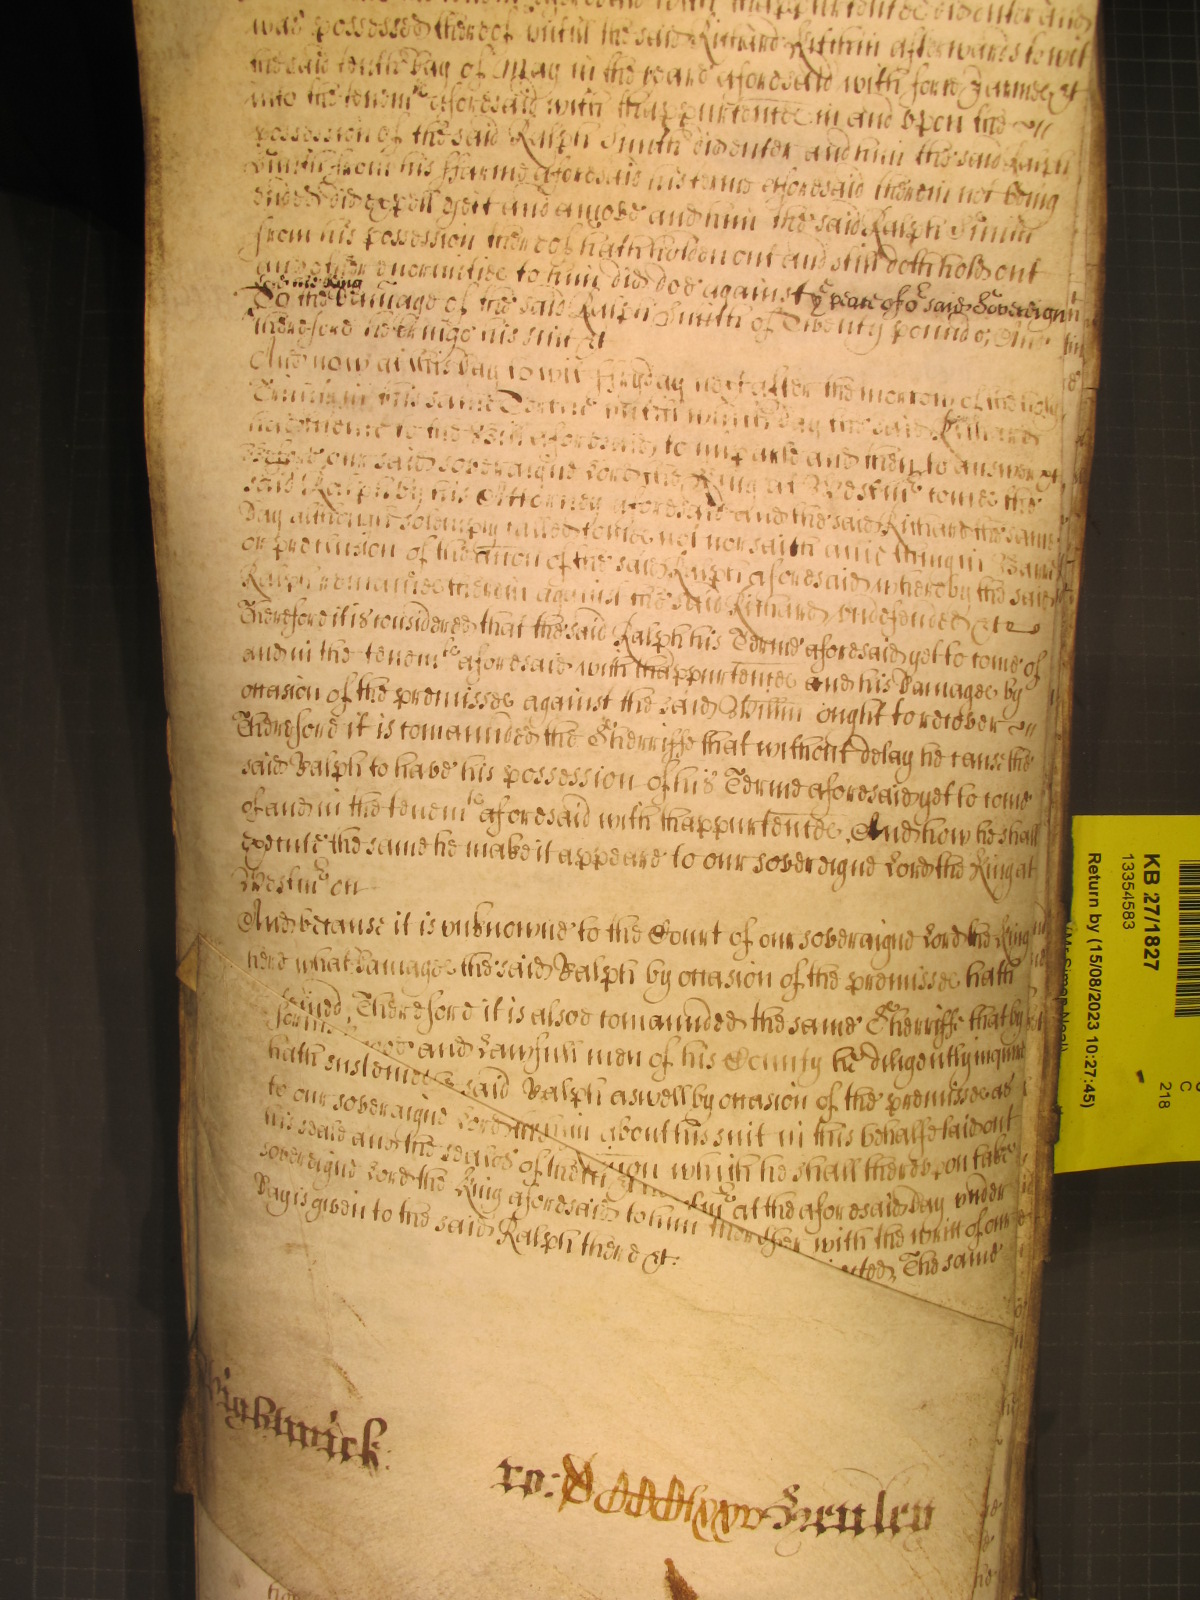 was possessed thereof untill the said Richard Kitchin afterwards to wit
the said tenth day of May in the yeare aforesaid with force & armes &c
into the tenemts aforesaid with thappurtences in and upon the
possession of the said Ralph Smith did enter and him the said Ralph
Smith from his Farme aforesaid his terme aforesaid therein not being
ended did expell eject and amove and him the said Ralph Smith
from his possession thereof hath holden out and still doth hold out
and other enormities to him did doe against ye peace of or said Sovereign
Lord the King
To the damage of the said Ralph Smith of Twenty pounds, And
therefore he brings his suit &c
And now at this day to wit Fryday next after the morrow of the holy
Trinity in this same Terme untill which day the said Richard
had licence to the Bill aforesaid to imparle and then to answer &c
before our said soveraigne Lord the King at Westmr comes the
said Ralph by his Attorney aforesaid and the said Richard the same
day although solempnly called comes not nor saith anie thing in Barr
or preclusion of the action of the said Ralph aforesaid whereby the said
Ralph remaines therein against the said Richard undefended &c
Therefore it is considered that the said Ralph his Terme aforesaid yet to come of
and in the tenemts aforesaid with thappurtences and his Damages by
occasion of the premisses against the said Willm ought to recover
Therefore it is comannded the Sherriffe that without delay he cause the
said Ralph to have his possession of his Terme aforesaid yet to come
of and in the tenemts aforesaid with thappurtences And how he shall
execute the same he make it appeare to our sovereigne Lord the King at
Westmr on
And because it is unknowne to the Court of our soveraigne Lord the King
here what Damages the said Ralph by occasion of the premisses hath
Therefore it is alsoe comannded the same Sherriffe that by
and Lawfull men of his County he diligently inquire
hath susteined said Ralph aswell by occasion of the premisses as
to our soveraigne Lord about his suit in this behalfe laid out
his seale and the seales of which he shall thereupon take
sovereigne Lord the King aforesaid to him at the aforesaid Day under
Day is given to the said Ralph there &c: together with the writt of our
The same
ro: Henley
KB 27/1827
13354583
Return by (15/08/2023 10:27:45)
C
218